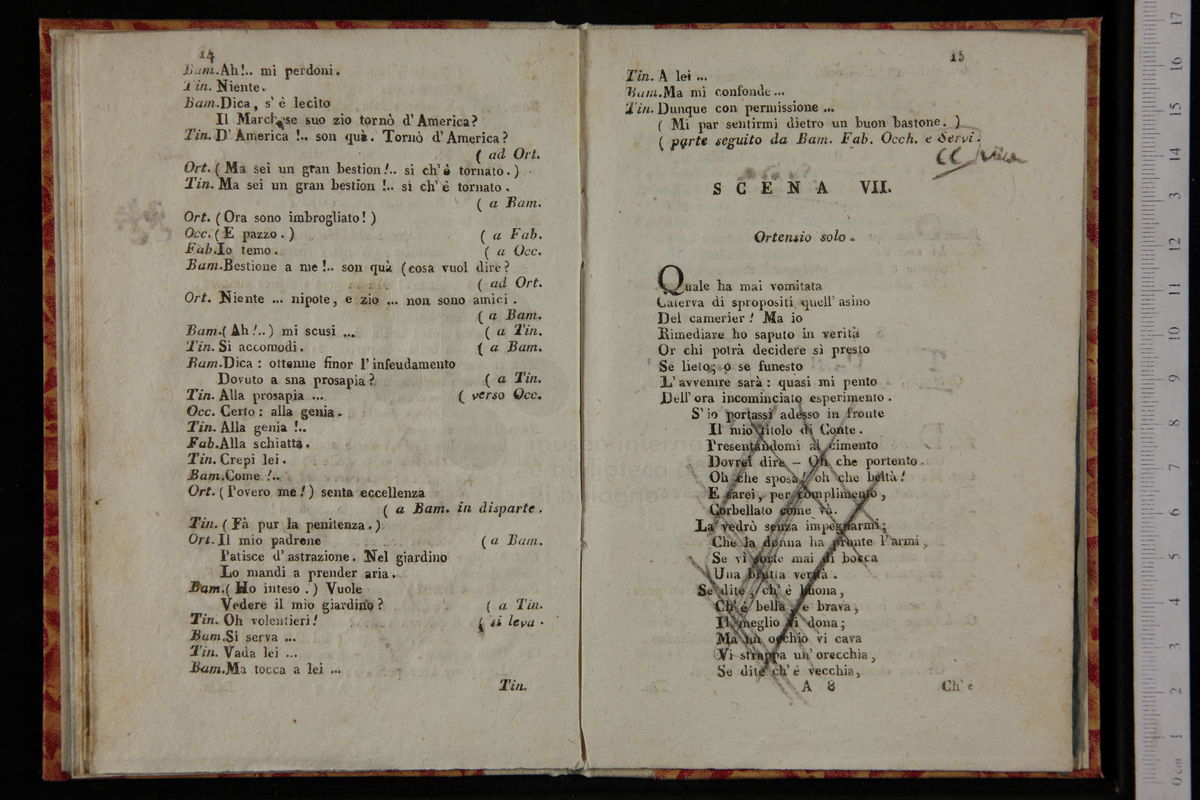 14
Bam. Ah!.. mi perdoni.
Tin. Niente.
Bam. Dica, s' è lecito
Il Marchese suo zio tornò d' America?
Tin. D' America !.. son quà. Tornò d' America?
( ad Ort.
Ort. ( Ma sei un gran bestion!.. si ch' è tornato. )
Tin. Ma sei un gran bestion !.. si ch' è tornato.
( a Bam.
Ort. ( Ora sono imbrogliato! )
Occ. ( E pazzo. ) ( a Fab.
Fab. Io temo. ( a Occ.
Bam. Bestione a me!.. son quà (cosa vuol dire?
( ad Ort.
Ort. Niente ... nipote, e zio ... non sono amici.
( a Bam.
Bam. ( Ah!..) mi scusi ... ( a Tin.
Tin. Si accomodi. ( a Bam.
Bam. Dica : ottenne finor l' infeudamento
Dovuto a sna prosapia? ( a Tin.
Tin. Alla prosapia ... ( verso Occ.
Occ. Certo : alla genia.
Tin. Alla genia !..
Fab. Alla schiatta.
Tin. Crepi lei.
Bam. Come !..
Ort. ( Povero me! ) senta eccellenza
( a Bam. in disparte.
Tin. ( Fà pur la penitenza. )
Ort. Il mio padrone ( a Bam.
Patisce d' astrazione. Nel giardino
Lo mandi a prender aria.
Bam. ( Ho inteso. ) Vuole
Vedere il mio giardino? ( a Tin.
Tin. Oh volentieri! ( si leva.
Bam. Si serva ...
Tin. Vada lei ...
Bam. Ma tocca a lei ...
Tin.
15
Tin. A lei ...
Bam. Ma mi confonde ...
Tin. Dunque con permissione ...
( Mi par sentirmi dietro un buon bastone. )
( parte seguito da Bam. Fab. Occh. e Servi.
SCENA VII.
Ortensio solo.
Quale ha mai vomitata
Caterva di spropositi quell' asino
Del camerier! Ma io
Rimediare ho saputo in verità
Or chi potrà decidere sì presto
Se lieto; o se funesto
L' avvenire sarà : quasi mi pento
Dell' ora incominciato esperimento.
S' io portassi adesso in fronte
Il mio titolo di Conte.
Presentandomi al cimento
Dovrei dire - Oh che portento.
Oh che sposa! oh che beltà!
E sarei, per complimento,
Corbellato come và.
La vedrò senza impegnarmi;
Che la donna ha pronte l' armi,
Se vi sorte mai di bocca
Una brutta verità.
Se dite, ch' è buona,
Ch' è bella, e brava,
Il meglio vi dona;
Ma un occhio vi cava
Vi strappa un' orecchia,
Se dite ch' è vecchia,
A 8 Ch' e